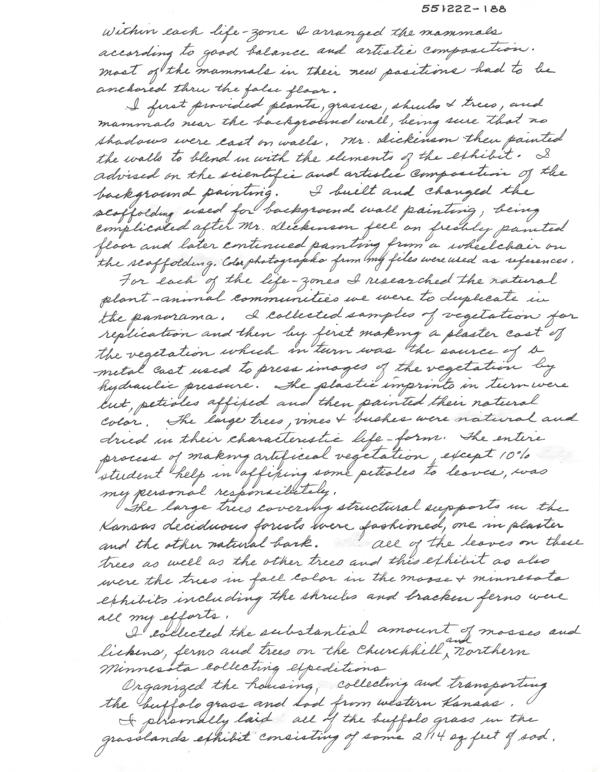 551222-188
Within each life-zone I arranged the mammals
according to good balance and artistic composition.
Most of the mammals in their new positions had to be
anchored thru the false floor.
I first provided plants, grasses, shrubs & trees, and
mammals near the background wall, being sure that no
shadows were cast on walls. Mr. Dickinson then painted
the walls to blend in with the elements of the exhibit. I
advised on the scientific and artistic composition of the
background painting. I built and changed the
scaffolding used for background wall painting, being
complicated after Mr. Dickinson feel on freshly painted
floor and later continued painting from a wheelchair on
the scaffolding. Color photographs from my files were used as references.
For each of the life-zones I researched the natural
plant-animal communities we were to duplicate in
the panorama. I collected samples of vegetation for
replication and then by first making a plaster cast of
the vegetation which in turn was the source of a
metal cast used to press images of the vegetation by
hydraulic pressure. The plastic imprints in turn were
cut, petioles affixed and then painted their natural
color. The large trees, vines & bushes were natural and
dried in their characteristic life-form. The entire
process of making artificeal vegetation, except 10%
student help in affixing some petioles to leaves, was
my personal responsibility.
The large trees covering structural supports in the
Kansas deciduous forests were fashioned, one in plaster
and the other natural bark. All of the leaves on these
trees as well as the other trees and this exhibit as also
were the trees in fall color in the moose & minnesota
exhibits including the shrubs and bracken ferns were
all my efforts.
I collected the substantial amount of mosses and
lickens, ferns and trees on the Churchhill, and Northern
Minnesota collecting expeditions
Organized the housing, collecting and transporting
the buffalo grass and sod from western Kansas.
I personally laid all of the buffalo grass in the
grasslands exhibit consisting of some 2114 sq feet of sod.